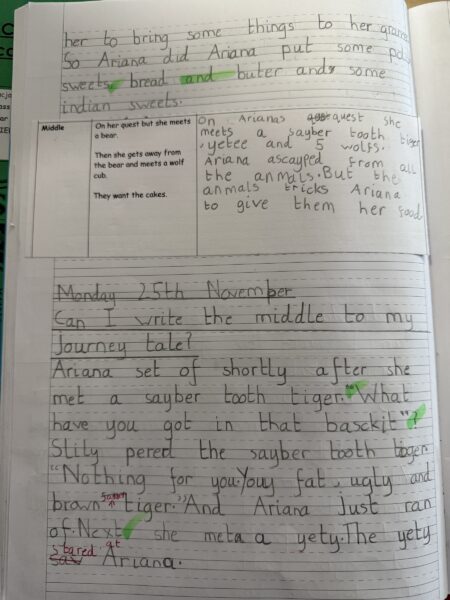 her to bring some things to her grann
So Ariana did Ariana put some
sweets, bread and buter and some
indian sweets.
Middle
On her quest but she meets
a bear.
Then she gets away from
the bear and meets a wolf
cub.
They want the cakes.
On Arianas quest she
meets a sayber tooth tiger
, yetee and 5 wolfs.
Ariana ascayped from all
the anmals. But the
anmals tricks Ariana
to give them her food
Monday 25th November
Can I write the middle to my
journey tale?
Ariana set of shortly after she
met a sayber tooth tiger. "What
have you got in that basckit"?
Slily pered the sayber tooth tiger
"Nothing for you. Youy fat, ugly and
brown tiger." And Ariana just ran
of. Next she meta a yety. The yety
stared at
saw Ariana.